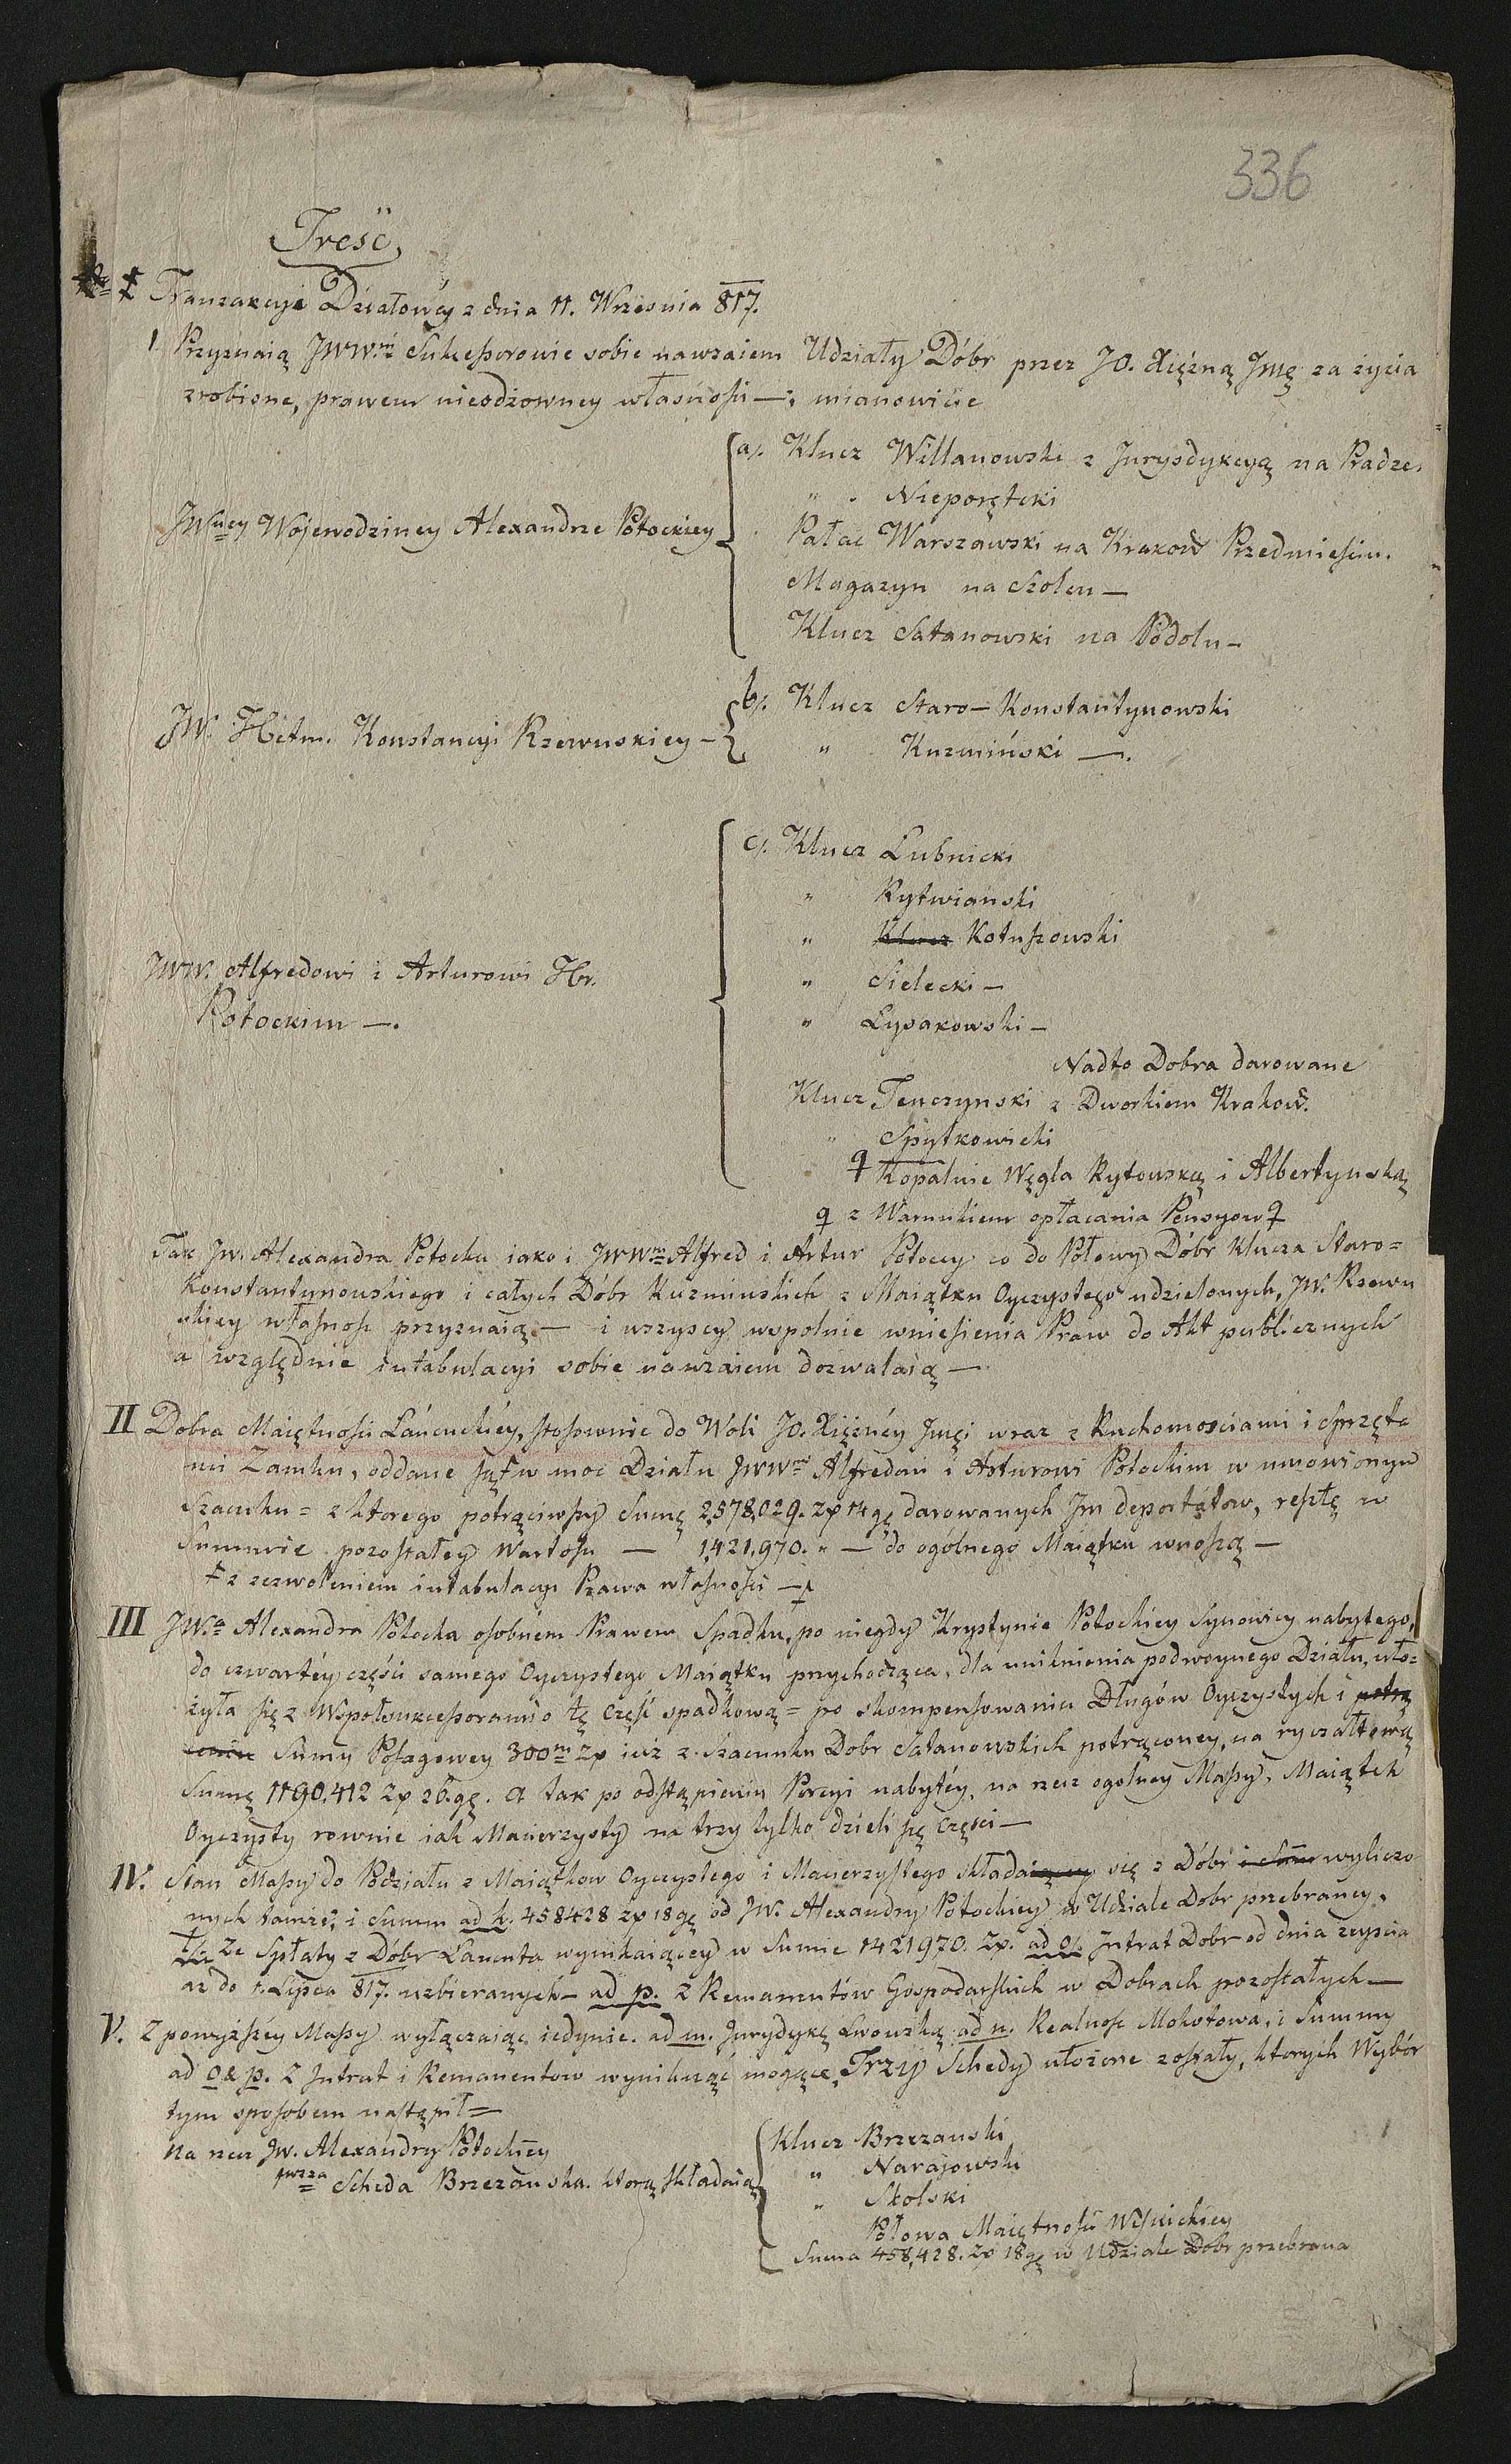 336
Treść
Tranzakcyi Działowéy z dnia 11. Wrzesnia 817.
1. Przyznaią JWW. Sukcessorowie sobie nawzaiem Udziały Dóbr przez JO. Xiężną Jmę za życia
zrobione, prawem nieodzowney własnosci —; mianowicie
JWney Wojewodziney Alexandrze Potockiey
a/. Klucz Willanowski z Jurysdykcyą na Pradze.
" . Nieporętcki
Pałac Warszawski na Krakow Przedmieściu.
Magazyn na Solcu —
Klucz Satanowski na Podolu —
JW. Hetm. Konstancyi Rzewuskiey —
b/. Klucz Staro — Konstantynowski
" Kuzmiński —.
JWW. Alfredowi i Arturowi Hr.
Potockim —.
c/. Klucz Łubnicki
" Rytwianski
" Klucz Kotuszowski
" Sielecki —
" Łysakowski —
Nadto Dobra darowane
Klucz Tenczynski z Dworkiem Krakow.
" Spytkowicki
Kopalnie Węgla Rytowską i Albertynską
z Warunkiem opłacania Pensyow
Tak JW. Alexandra Potocka iako i JWW. Alfred i Artur Potoccy co do Połowy Dóbr Klucza Staro=
Konstantynowskiego i całych Dóbr Kuzminskich z Maiątku Oyczystego udzielonych, JW. Rzewu
skiey własnosc przyznaią — i wszyscy wspolnie wniesienia Praw do Akt publicznych
a względnie intabulacyi sobie nawzaiem dozwalaią —
II Dobra Maiętnosci Łańcuckiéy, stosownie do Woli JO. Xiężnéy Jmci wraz z Ruchomosciami i Sprzęta
mi Zamku, oddane są w moc Działu JWW. Alfredowi i Arturowi Potockim w umowionym
Szacunku = z ktorego potrąciwszy Sumę 2,578,029. zp 14 gr darowanych Im deportatow, resztę w
Summie pozostałey Wartosci — 1,421,970. " — do ogólnego Maiątku wnoszą —
z zezwoleniem intabulacyi Prawa własnosci —
III JW. Alexandra Potocka osobném Prawem Spadku, po niegdy Krystynie Potockiey Synowicy nabytego,
do czwartéy części samego Oyczystego Maiątku przychodząca, dla uniknienia podwoynego Działu, uło=
żyła się z Wspołsukcessorami o tę część spadkową = po skompensowaniu Długów Oyczystych i potrą
ceniu Sumy Posagowey 300m zp iuż z Szacunku Dobr Satanowskich potrąconey, na ryczałtową
Sumę 1190,412 zp 26. gr. A tak po odstąpieniu Porcyi nabytéy, na rzecz ogolney Massy, Maiątek
Oyczysty rownie iak Macierzysty na trzy tylko dzieli się części —
IV. Stan Massy do Podziału z Maiątkow Oyczystego i Macierzystego składaiący się z Dóbr i Sum wyliczo
nych tamże, i Summ ad k. 458428 zp 18 gr od JW. Alexandry Potockiey w Udziale Dobr przebraney.
ze Spłaty z Dóbr Łancuta wynikaiącey w Sumie 1421970. zp. ad o/. Intrat Dobr od dnia zeyscia
aż do 1. Lipca 817. uzbieranych — ad p. z Remanentów Gospodarskich w Dobrach pozostałych —
V. Z powyższéy Massy wyłączaiąc iedynie. ad m. Jurydykę Lwowską ad n. Realnosc Mokotowa, i Summy
ad o & p. z Intrat i Remanentow wyniknąć mogące, Trzy Schedy ułożone zostały, ktorych Wybór
tym sposobem nastąpił =
Na rzecz JW. Alexandry Potockiey
pwsza Scheda Brzezańska. ktorą składaią
Klucz Brzezanski
" Narajowski
" Stolski
Połowa Maiętnosci Wisnickiey
Suma 458,428. zp 18 gr w Udziale Dobr przebrana